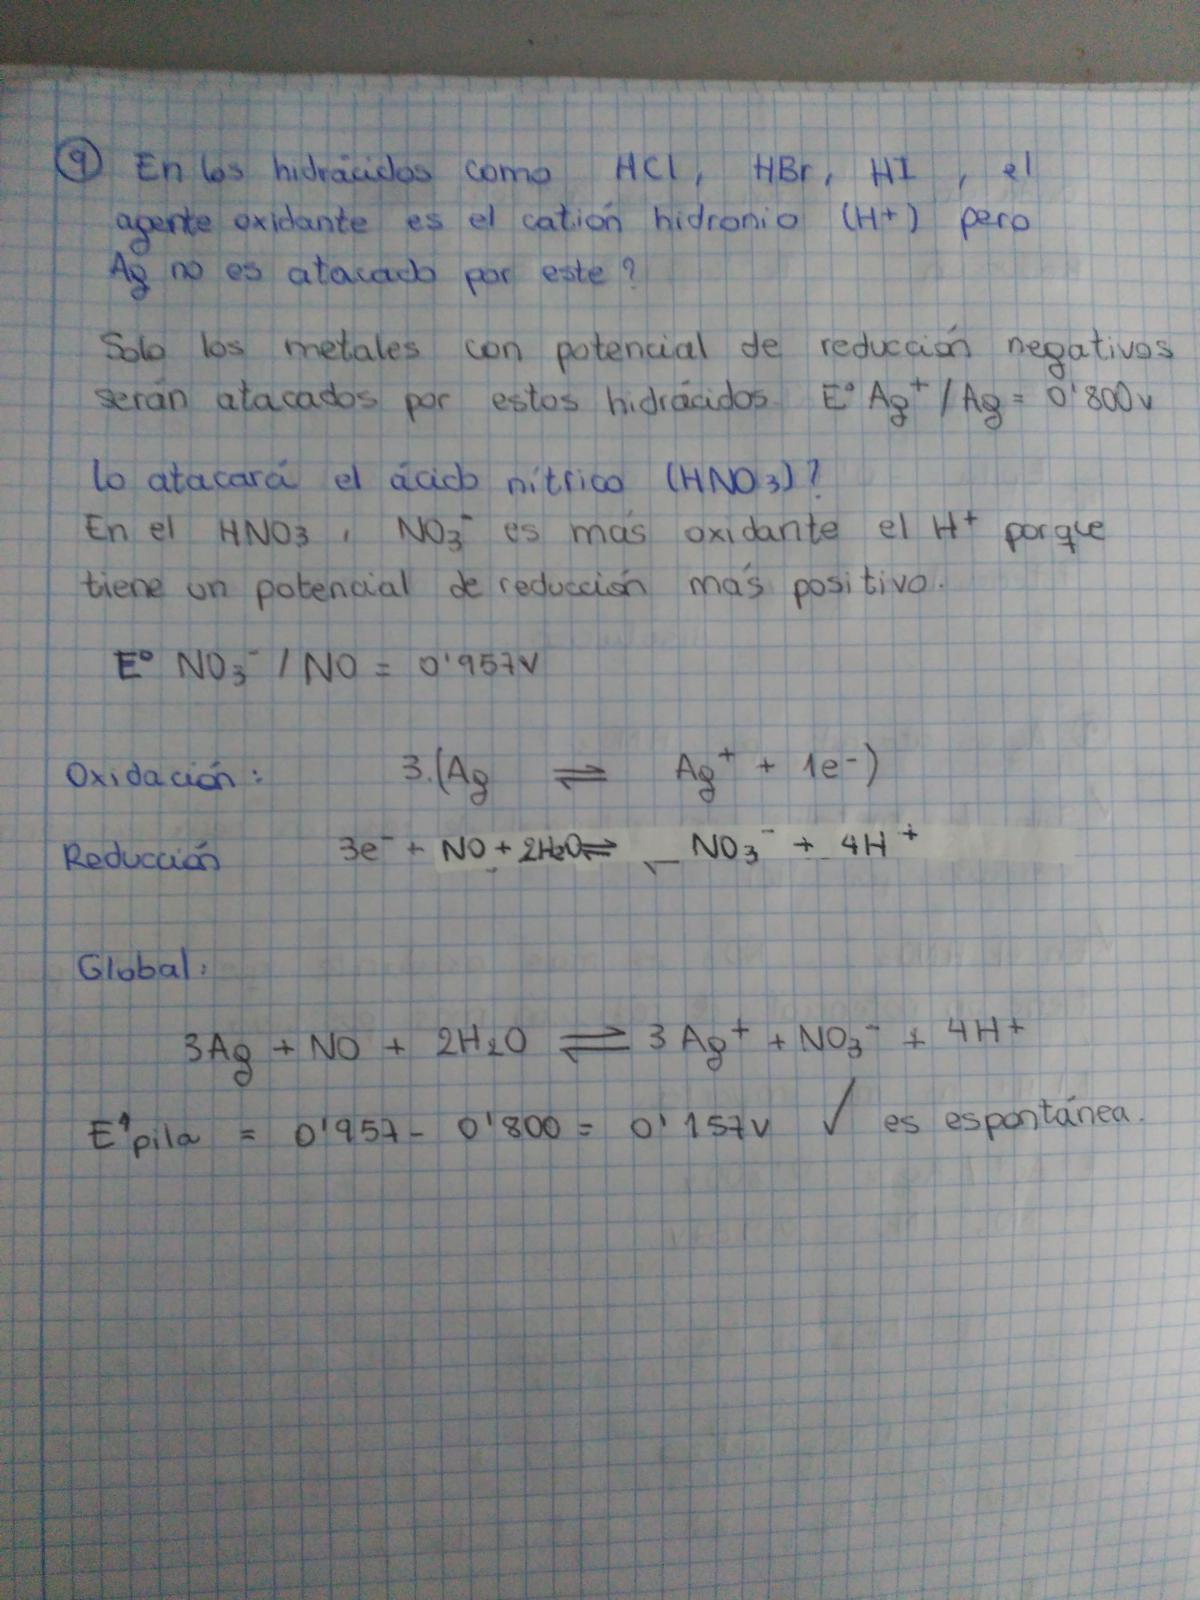 9 En los hidrácidos como HCl, HBr, HI, el
agente oxidante es el catión hidronio (H+) pero
Ag no es atacado por este?
Solo los metales con potencial de reducción negativos
serán atacados por estos hidrácidos. E° Ag⁺/Ag = 0'800v
lo atacará el ácido nítrico (HNO₃)?
En el HNO₃, NO₃⁻ es más oxidante el H⁺ porque
tiene un potencial de reducción más positivo.
E° NO₃⁻ / NO = 0'957v
Oxidación: 3.(Ag ⇌ Ag⁺ + 1e⁻)
Reducción 3e⁻ + NO + 2H₂O ⇌ NO₃⁻ + 4H⁺
Global:
3Ag + NO + 2H₂O ⇌ 3Ag⁺ + NO₃⁻ + 4H⁺
E°pila = 0'957 - 0'800 = 0'157v ✓ es espontánea.